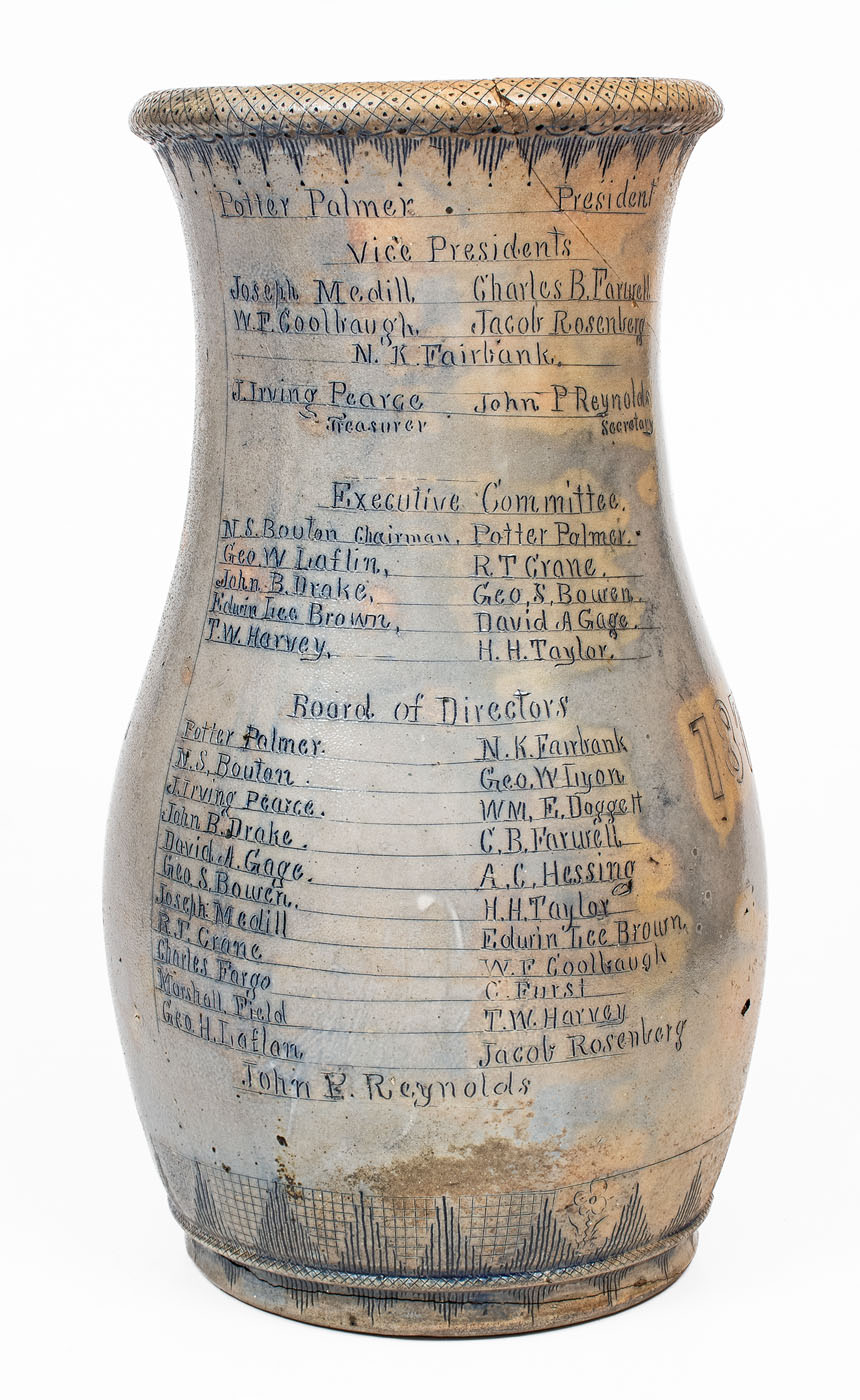 Potter Palmer. President
Vice Presidents
Joseph Medill, Charles B. Farwell
W.F. Coolbaugh, Jacob Rosenberg
N. K. Fairbank.
J. Irving Pearce John P Reynolds
Treasurer Secretary
Executive Committee.
N.S. Bouton Chairman, Potter Palmer.
Geo. W Laflin, R.T Crane.
John B. Drake, Geo. S. Bowen.
Edwin Lee Brown, David A Gage.
T.W. Harvey, H. H. Taylor.
Board of Directors
Potter Palmer. N. K. Fairbank
N.S. Bouton. Geo. W Lyon
J. Irving Pearce. WM. E. Doggett
John B. Drake. C. B. Farwell
David A. Gage. A. C. Hessing
Geo. S. Bowen. H.H. Taylor
Joseph Medill Edwin Lee Brown,
R.T. Crane W. F Coolbaugh
Charles Fargo C. Furst
Marshall Field T.W. Harvey
Geo. H. Laflan, Jacob Rosenberg
John P. Reynolds